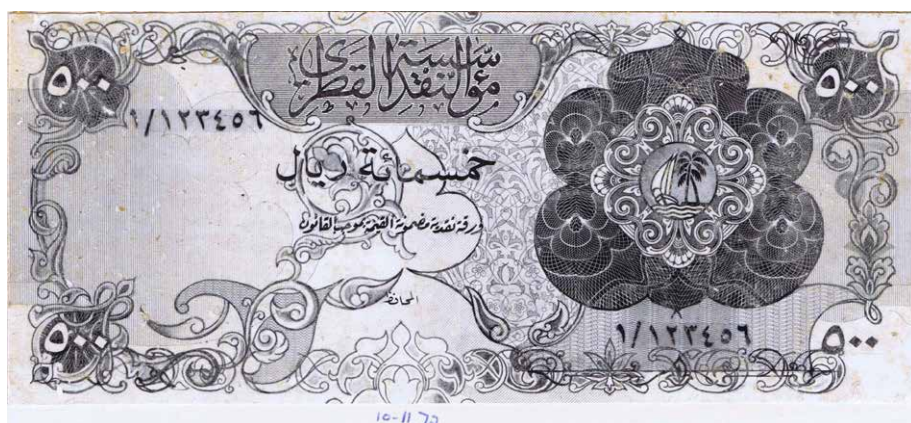 مؤسسة النقد القطري
٥٠٠
٥٠٠
١/١٢٣٤٥٦
خمسمائة ريال
ورقة نقدية مضمونة القيمة بموجب القانون
المحافظ
١/١٢٣٤٥٦
٥٠٠
٥٠٠